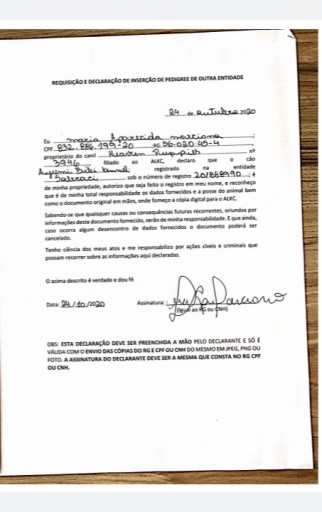 REQUISIÇÃO E DECLARAÇÃO DE INSERÇÃO DE PEDIGREE DE OUTRA ENTIDADE
24 de outubro 2020
Eu maria Aparecida marciana ;
CPF 832.886.199-20
proprietário do canil Heaven Puppies nº
3946 filiado ao ALKC, declara que o cão
registrado na entidade
Sobraci sob o número de registro 201888990 ; é
de minha propriedade, autorizo que seja feito o registro em meu nome, e reconheço
que é de minha total responsabilidade os dados fornecidos e a posse do animal bem
como o documento original em mãos, onde forneço a cópia digital para o ALKC.
Sabendo-se que quaisquer causas ou consequências futuras recorrentes, oriundos por
informações deste documento fornecido, serão de minha responsabilidade. E que ainda,
caso ocorra algum desencontro de dados fornecidos o documento poderá ser
cancelado.
Tenho ciência dos meus atos e me responsabilizo por ações cíveis e criminais que
possam recorrer sobre as informações aqui declaradas.
O acima descrito é verdade e dou fé
Data: 24/10/2020 Assinatura:
(Igual ao RG ou CNH)
OBS: ESTA DECLARAÇÃO DEVE SER PREENCHIDA A MÃO PELO DECLARANTE E SÓ É
VÁLIDA COM O ENVIO DAS CÓPIAS DO RG E CPF OU CNH DO MESMO EM JPEG, PNG OU
FOTO. A ASSINATURA DO DECLARANTE DEVE SER A MESMA QUE CONSTA NO RG CPF
OU CNH.